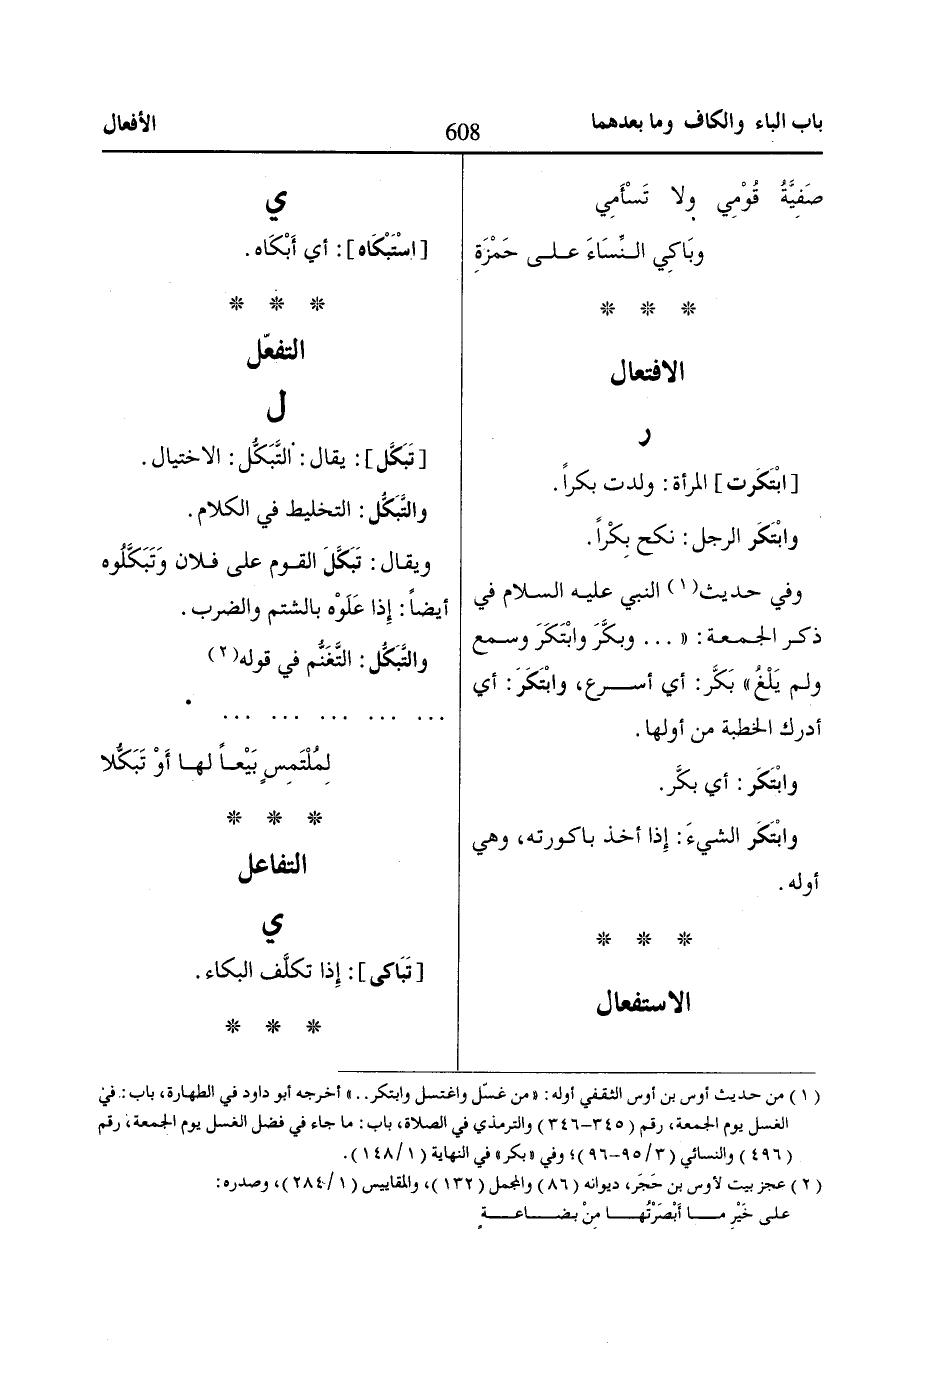 باب الباء والكاف وما بعدهما
608
الأفعال
صَفِيَّةُ قُوْمِي ولا تَسْأَمِي
وبَاكِي النِّسَاءَ على حَمْزَةِ
* * *
الافتعال
ر
[ابْتَكَرت] المرأة: ولدت بكراً.
وابْتَكَر الرجل: نكح بِكْراً.
وفي حديث(١) النبي عليه السلام في
ذكر الجمعة: «... وبكَّرَ وابْتَكَرَ وسمع
ولم يَلْغُ» بَكَّر: أي أسرع، وابْتَكَرَ: أي
أدرك الخطبة من أولها.
وابْتَكَر: أي بكَّر.
وابْتَكَر الشيءَ: إذا أخذ باكورته، وهي
أوله.
* * *
الاستفعال
ي
[اسْتَبْكَاه]: أي أَبْكَاه.
* * *
التفعّل
ل
[تَبَكَّل]: يقال: التَّبَكُّل: الاختيال.
والتَّبَكُّل: التخليط في الكلام.
ويقال: تَبَكَّلَ القوم على فلان وَتَبَكَّلُوه
أيضاً: إذا عَلَوْه بالشتم والضرب.
والتَّبَكُّل: التَّغَنُّم في قوله(٢)
... ... ... ... ...
لِمُلْتَمِسٍ بَيْعاً لها أوْ تَبَكُّلا
* * *
التفاعل
ي
[تَبَاكى]: إذا تكلَّف البكاء.
* * *
(١) من حديث أوس بن أوس الثقفي أوله: «من غسّل واغتسل وابتكر..» أخرجه أبو داود في الطهارة، باب: في
الغسل يوم الجمعة، رقم (٣٤٥-٣٤٦) والترمذي في الصلاة، باب: ما جاء في فضل الغسل يوم الجمعة، رقم
(٤٩٦) والنسائي (٣/٩٥-٩٦)؛ وفي «بكر» في النهاية (١/١٤٨).
(٢) عجز بيت لأوس بن حَجَر، ديوانه (٨٦) والمجمل (١٣٢)، والمقاييس (١/٢٨٤)، وصدره:
على خَيْرِ ما أَبْصَرْتُها مِنْ بضاعةٍ